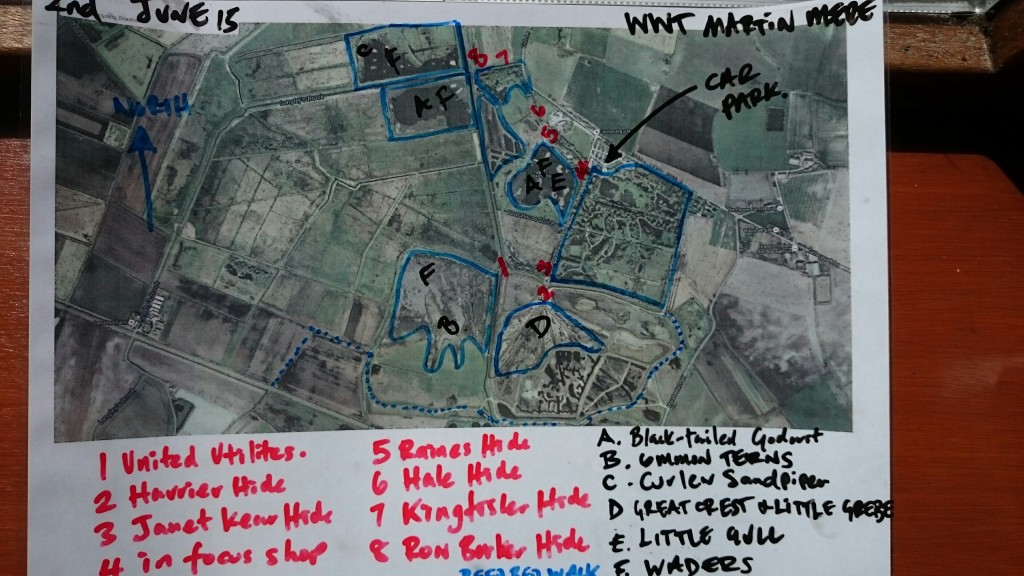 2nd JUNE 15
WWT MARTIN MEBE
NORTH
CAR
PARK.
C F
A F
8 7
6
5
F
A E
4
1
3
2
F
B
D
1 United Utilites.
2 Harrier Hide
3 Janet Kear Hide
4 in focus shop
5 Raines Hide
6 Hale Hide
7 Kingfisher Hide
8 Ron Barker Hide
REED BED WALK
A. Black-tailed Godwit
B. Common TERNS
C. Curlew Sandpiper
D GREAT CREST & LITTLE GREBE
E. LITTLE GULL
F. WADERS